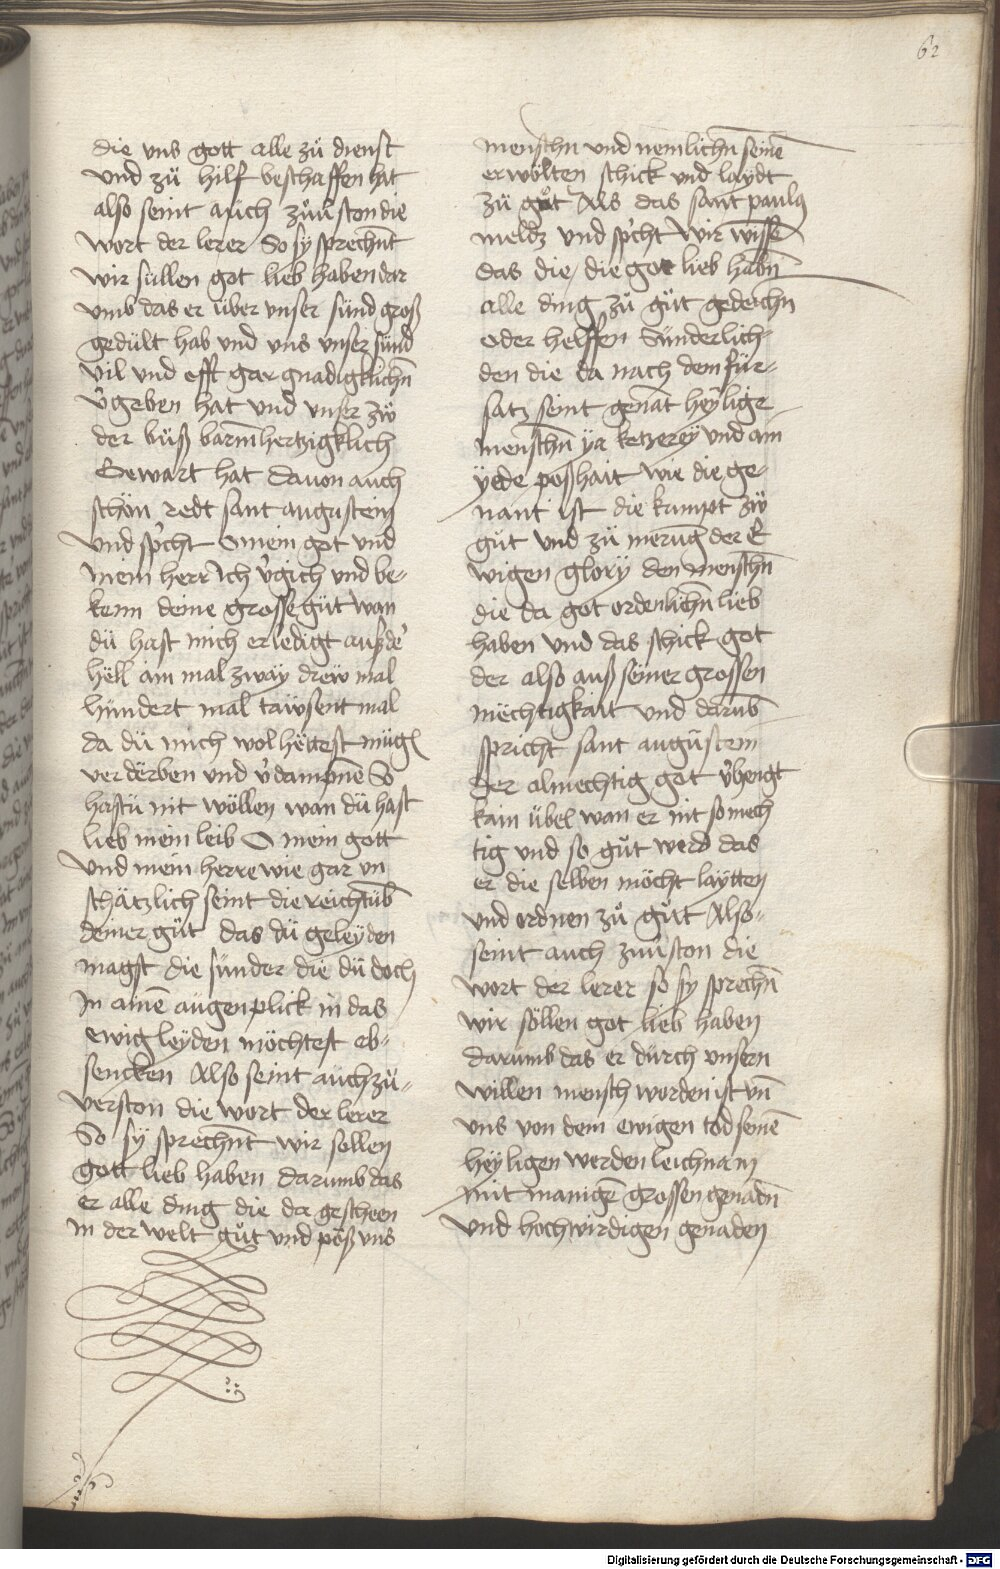 62
die vns gott alle zů dienst
vnd zů hilf beschaffen hat
also seint auch zuu̓ston die
wort der lerer So sy sprechñt
wir süllen got lieb haben dar
vmb das er über vnser sünd groß
gedült hab vnd vns vnser sünd
vil vnd offt gar gnadigklichñ
v̓geben hat vnd vnser zw̋
der büß barmhertzigklich
Gewart hat dauon auch
schön redt sant augustein
vnd sp̓cht O mein got vnd
mein herr Ich v̓gich vnd be-
kenn deine grosse güt wan
dü hast mich erledigt auß de̓
hëll ain mal zwäy drew mal
hundert mal tawsent mal
da dü mich wol hëttest müg
verdërben vnd v̓damonē So
hastü nit wöllen wan dü hast
lieb mein leib O mein gott
vnd mein herre wie gar vn
schätzlich seint die reichtub̄
deiner gůt das dü geleyden
magst die sünder die dü doch
In ainē augenplick in das
ewig leyden möchtest eb-
sencken Also seint auch zü-
verston die wort der lerer
So sy sprechñt wir sollen
gott lieb haben darumb das
er alle ding die da gescheen
in der welt gůt vnd pöß vns
menschn vnd nemlichñ seinē
erwölten schick vnd laydt
zü gůt Als das sant paulus
meldz vnd sp̓cht Wir wissē
das die / die got lieb habñ
alle ding zů gůt gedeichñ
oder helffen Sünderlich-
den die da nach dem für-
satz seint genāt heylige
menschñ ya ketzerey vnd ain
yede poßhait wie die ge-
nant ist die kumpt zw̋
gůt vnd zü merūg der E
wigen glory den menschñ
die da got ordenlichñ lieb
haben vnd das schick got
der also auß seiner grossen
mëchtigkait vnd darub̄
spricht sant augustein
Der almechtig got v̓hengt
kain übel wan er nit so mech
tig vnd so gůt werd das
er die selben möcht laytten
vnd ordnen zů gůt Also-
seint auch zuu̓ston die
wort der lerer so sy sprechñ
wir söllen got lieb haben
darumb das er dürch vnsern
willen mensch worden ist vn̄
vns von dem ewigen tod seinē
heyligen werden leichnam
mit manigē grossen genadñ
vnd hochwirdigen genaden
Digitalisierung gefördert durch die Deutsche Forschungsgemeinschaft - DFG